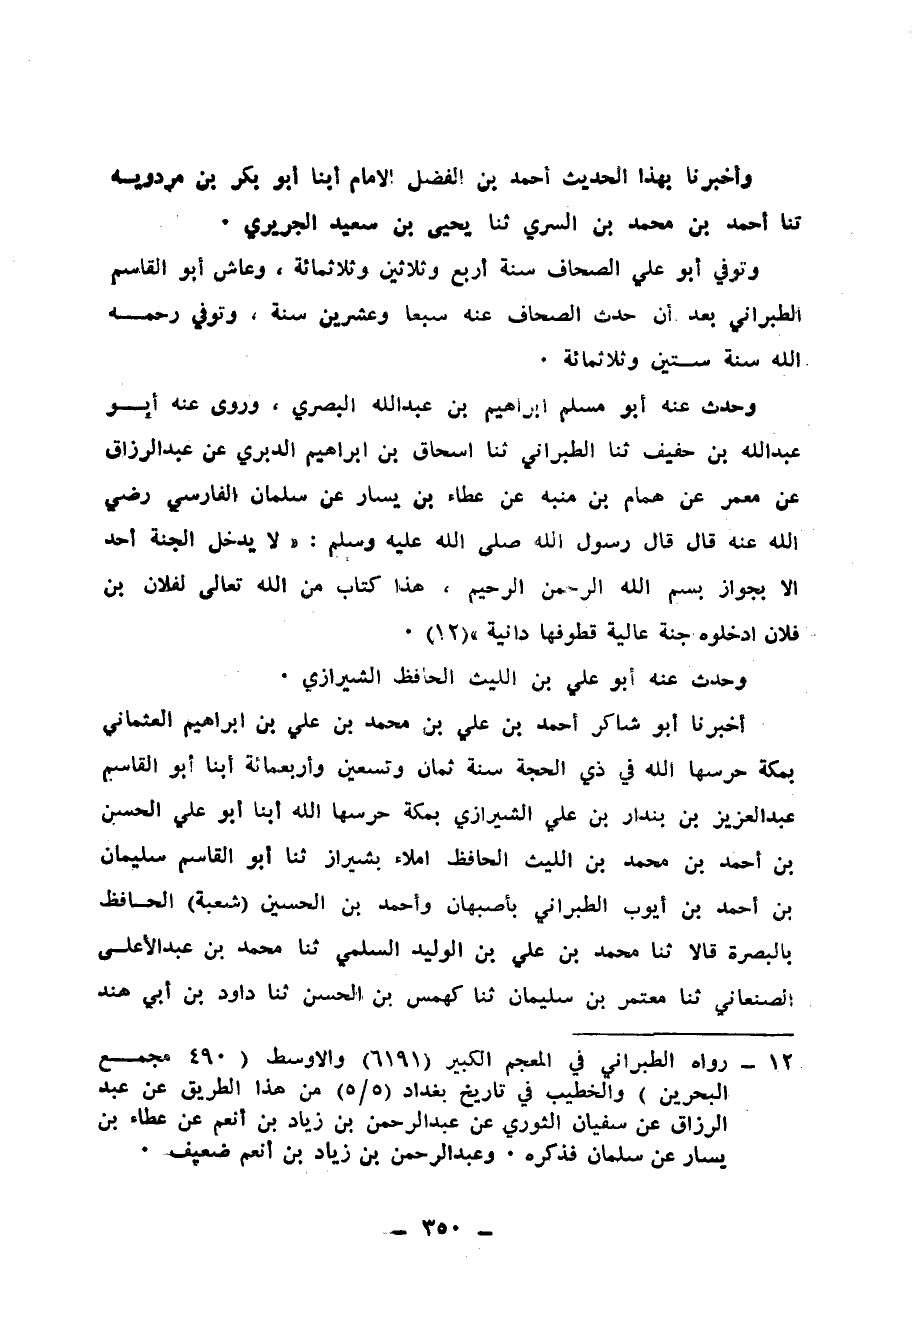 وأخبرنا بهذا الحديث أحمد بن الفضل الامام أبنا أبو بكر بن مردويــه
ثنا أحمد بن محمد بن السري ثنا يحيى بن سعيد الجريري ٠
وتوفي أبو علي الصحاف سنة أربع وثلاثين وثلاثمائة ، وعاش أبو القاسم
الطبراني بعد أن حدث الصحاف عنه سبعا وعشرين سنة ، وتوفي رحمـــه
الله سنة ســتين وثلاثمائة ٠
وحدث عنه أبو مسلم ابراهيم بن عبدالله البصري ، وروى عنه أبــو
عبدالله بن حفيف ثنا الطبراني ثنا اسحاق بن ابراهيم الدبري عن عبدالرزاق
عن معمر عن همام بن منبه عن عطاء بن يسار عن سلمان الفارسي رضي
الله عنه قال قال رسول الله صلى الله عليه وسلم : « لا يدخل الجنة أحد
الا بجواز بسم الله الرحمن الرحيم ، هذا كتاب من الله تعالى لفلان بن
فلان ادخلوه جنة عالية قطوفها دانية »(١٢) ٠
وحدث عنه أبو علي بن الليث الحافظ الشيرازي ٠
أخبرنا أبو شاكر أحمد بن علي بن محمد بن علي بن ابراهيم العثماني
بمكة حرسها الله في ذي الحجة سنة ثمان وتسعين وأربعمائة أبنا أبو القاسم
عبدالعزيز بن بندار بن علي الشيرازي بمكة حرسها الله أبنا أبو علي الحسن
بن أحمد بن محمد بن الليث الحافظ املاء بشيراز ثنا أبو القاسم سليمان
بن أحمد بن أيوب الطبراني بأصبهان وأحمد بن الحسين (شعبة) الحــافظ
بالبصرة قالا ثنا محمد بن علي بن الوليد السلمي ثنا محمد بن عبدالأعلــى
الصنعاني ثنا معتمر بن سليمان ثنا كهمس بن الحسن ثنا داود بن أبي هند
١٢ ــ رواه الطبراني في المعجم الكبير (٦١٩١) والاوسط ( ٤٩٠ مجمــع
البحرين ) والخطيب في تاريخ بغداد (٥/٥) من هذا الطريق عن عبد
الرزاق عن سفيان الثوري عن عبدالرحمن بن زياد بن أنعم عن عطاء بن
يسار عن سلمان فذكره ٠ وعبدالرحمن بن زياد بن أنعم ضعيف ٠
ــ ٣٥٠ ــ